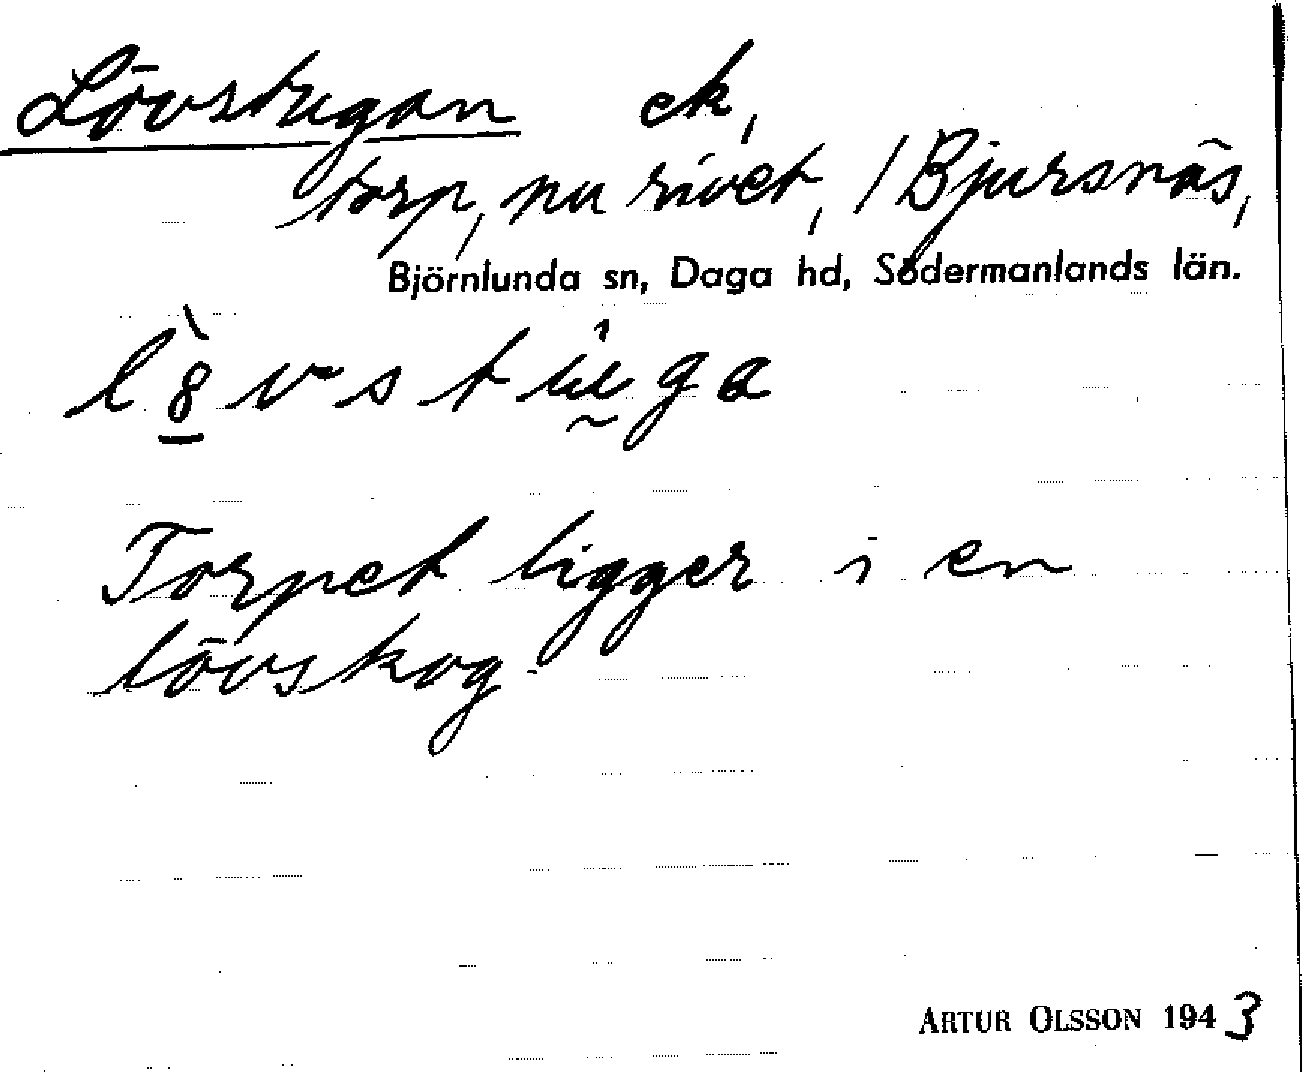 Lövstugan ek,
torp, nu rivet, /Bjursnäs,
Björnlunda sn, Daga hd, Södermanlands län.
l8̠̀vstṵ́ga
Torpet ligger i en
lövskog.
ARTUR OLSSON 1943